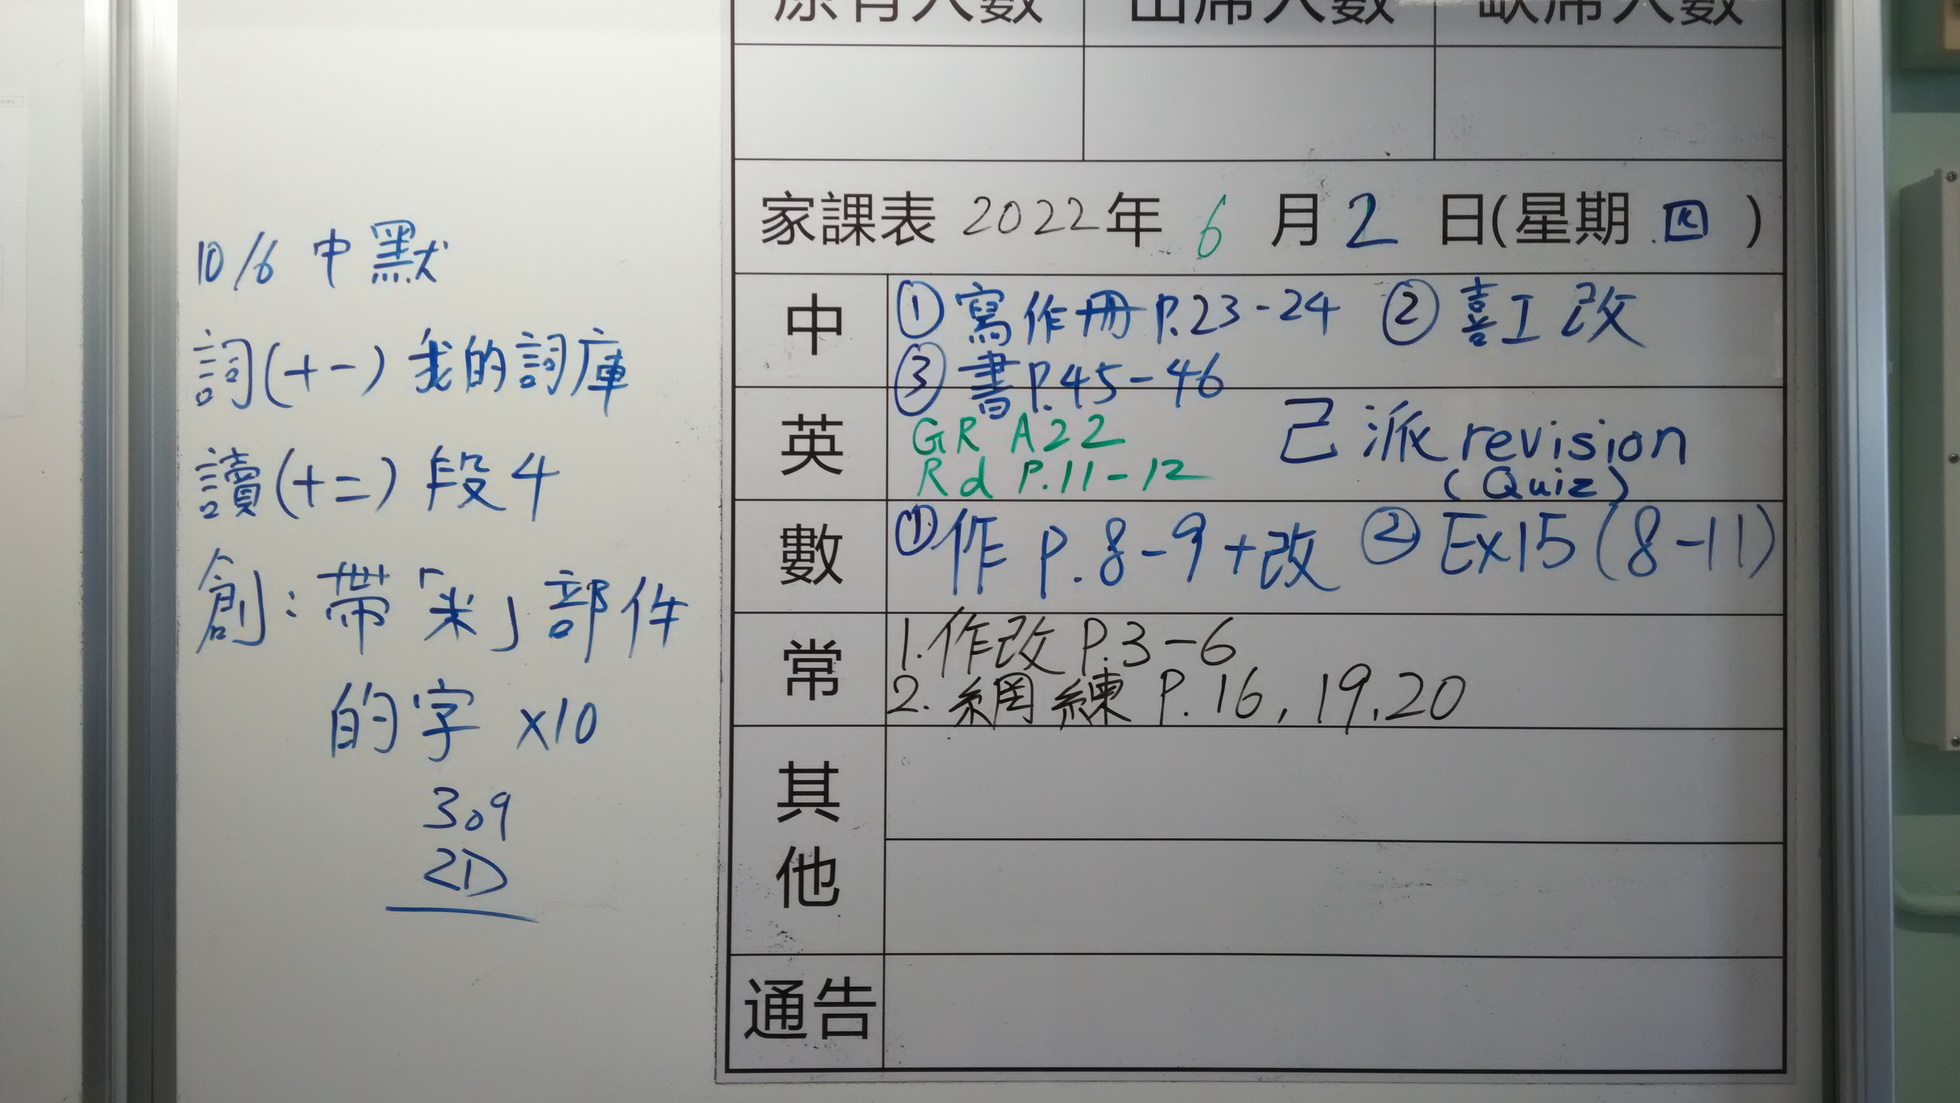 原有人數 出席人數 缺席人數
家課表 2022年 6 月 2 日(星期 四 )
中 ① 寫作冊 P.23-24 ② 喜工改
③ 書P.45-46
英 GR A22 已派 revision
Rd P.11-12 (Quiz)
數 ① 作 P.8-9+改 ② Ex15 (8-11)
常 1. 作改 P.3-6
2. 網練 P.16, 19, 20
其他
通告
10/6 中默
詞(十一) 我的詞庫
讀(十二) 段4
創:帶「米」部件
的字 x10
309
2D